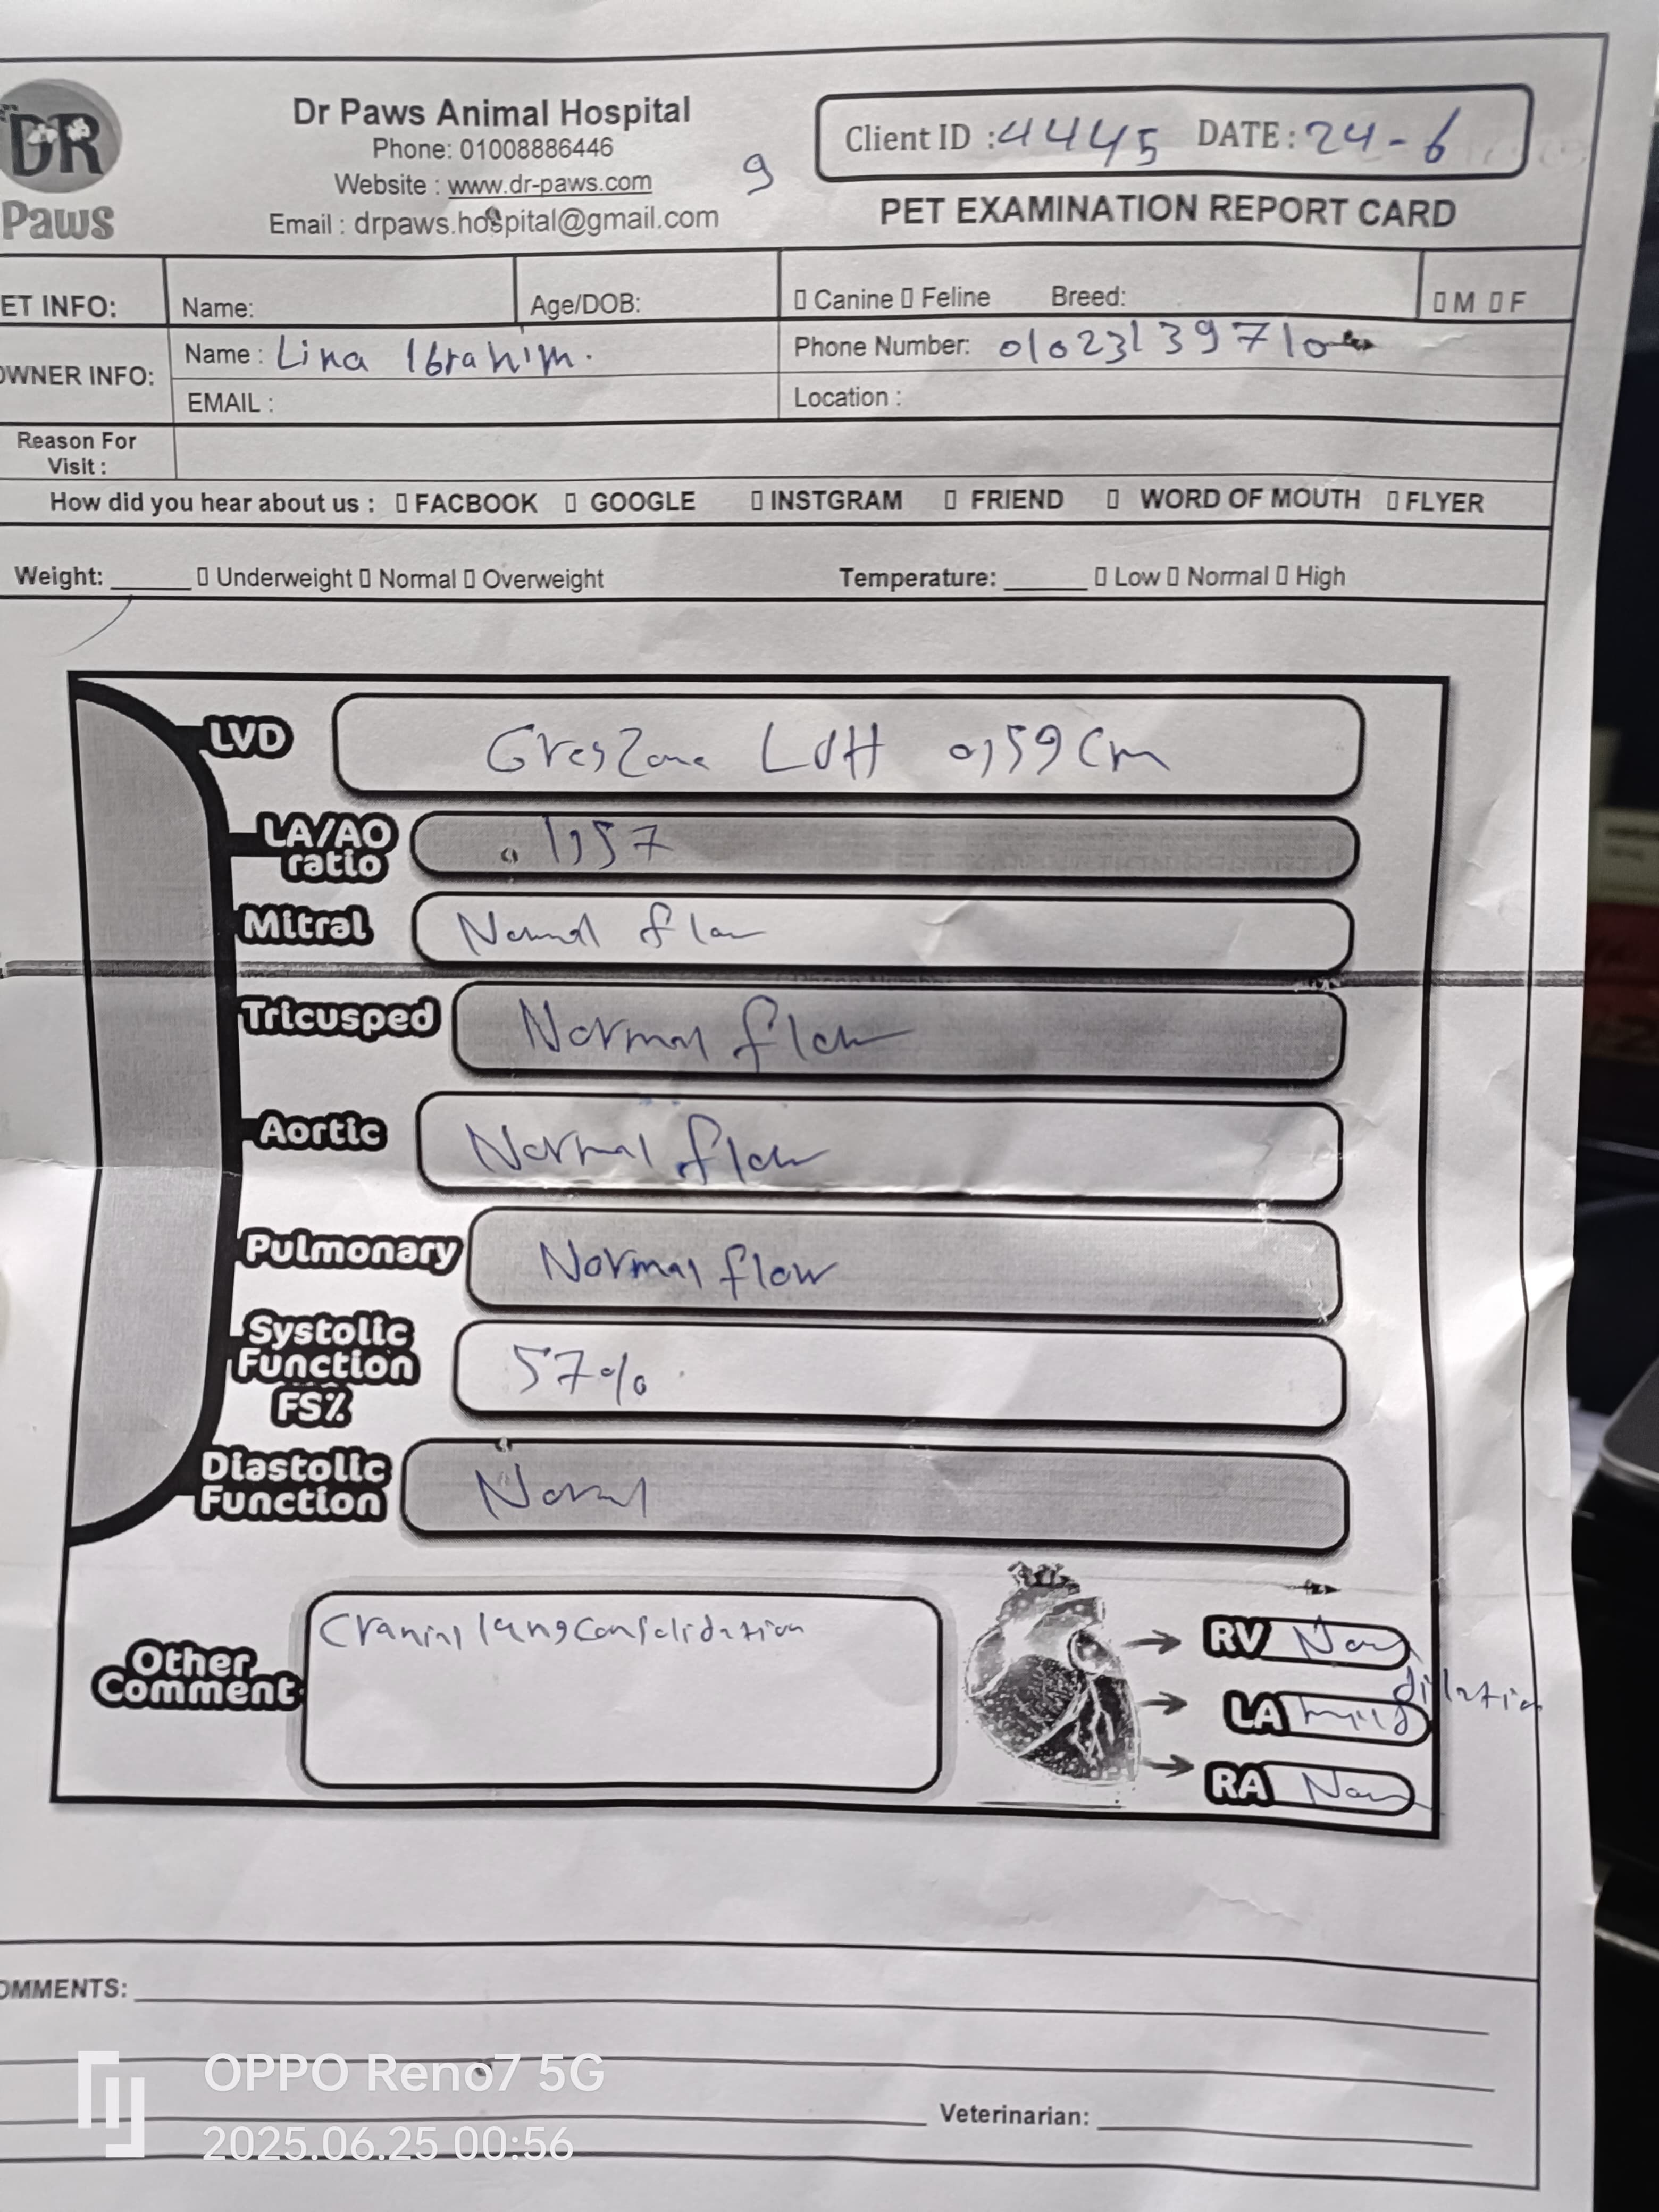 DR
Paws
Dr Paws Animal Hospital
Phone: 01008886446
Website : www.dr-paws.com
Email : drpaws.hospital@gmail.com
9
Client ID : 4445 DATE : 24-6
PET EXAMINATION REPORT CARD
ET INFO: Name: Age/DOB: Canine Feline Breed: M F
OWNER INFO: Name : Lina Ibrahim. Phone Number: 01023139710
EMAIL : Location :
Reason For
Visit :
How did you hear about us : FACBOOK GOOGLE INSTGRAM FRIEND WORD OF MOUTH FLYER
Weight: Underweight Normal Overweight Temperature: Low Normal High
LVD GreyZone LVH 0,59 Cm
LA/AO
ratio 1,57
Mitral Normal flow
Tricusped Normal flow
Aortic Normal flow
Pulmonary Normal flow
Systolic
Function
FS% 57%
Diastolic
Function Normal
Other
Comment Cranial lung consolidation
RV Nor
LA mild dilation
RA Nor
OMMENTS:
Veterinarian:
OPPO Reno7 5G
2025.06.25 00:56